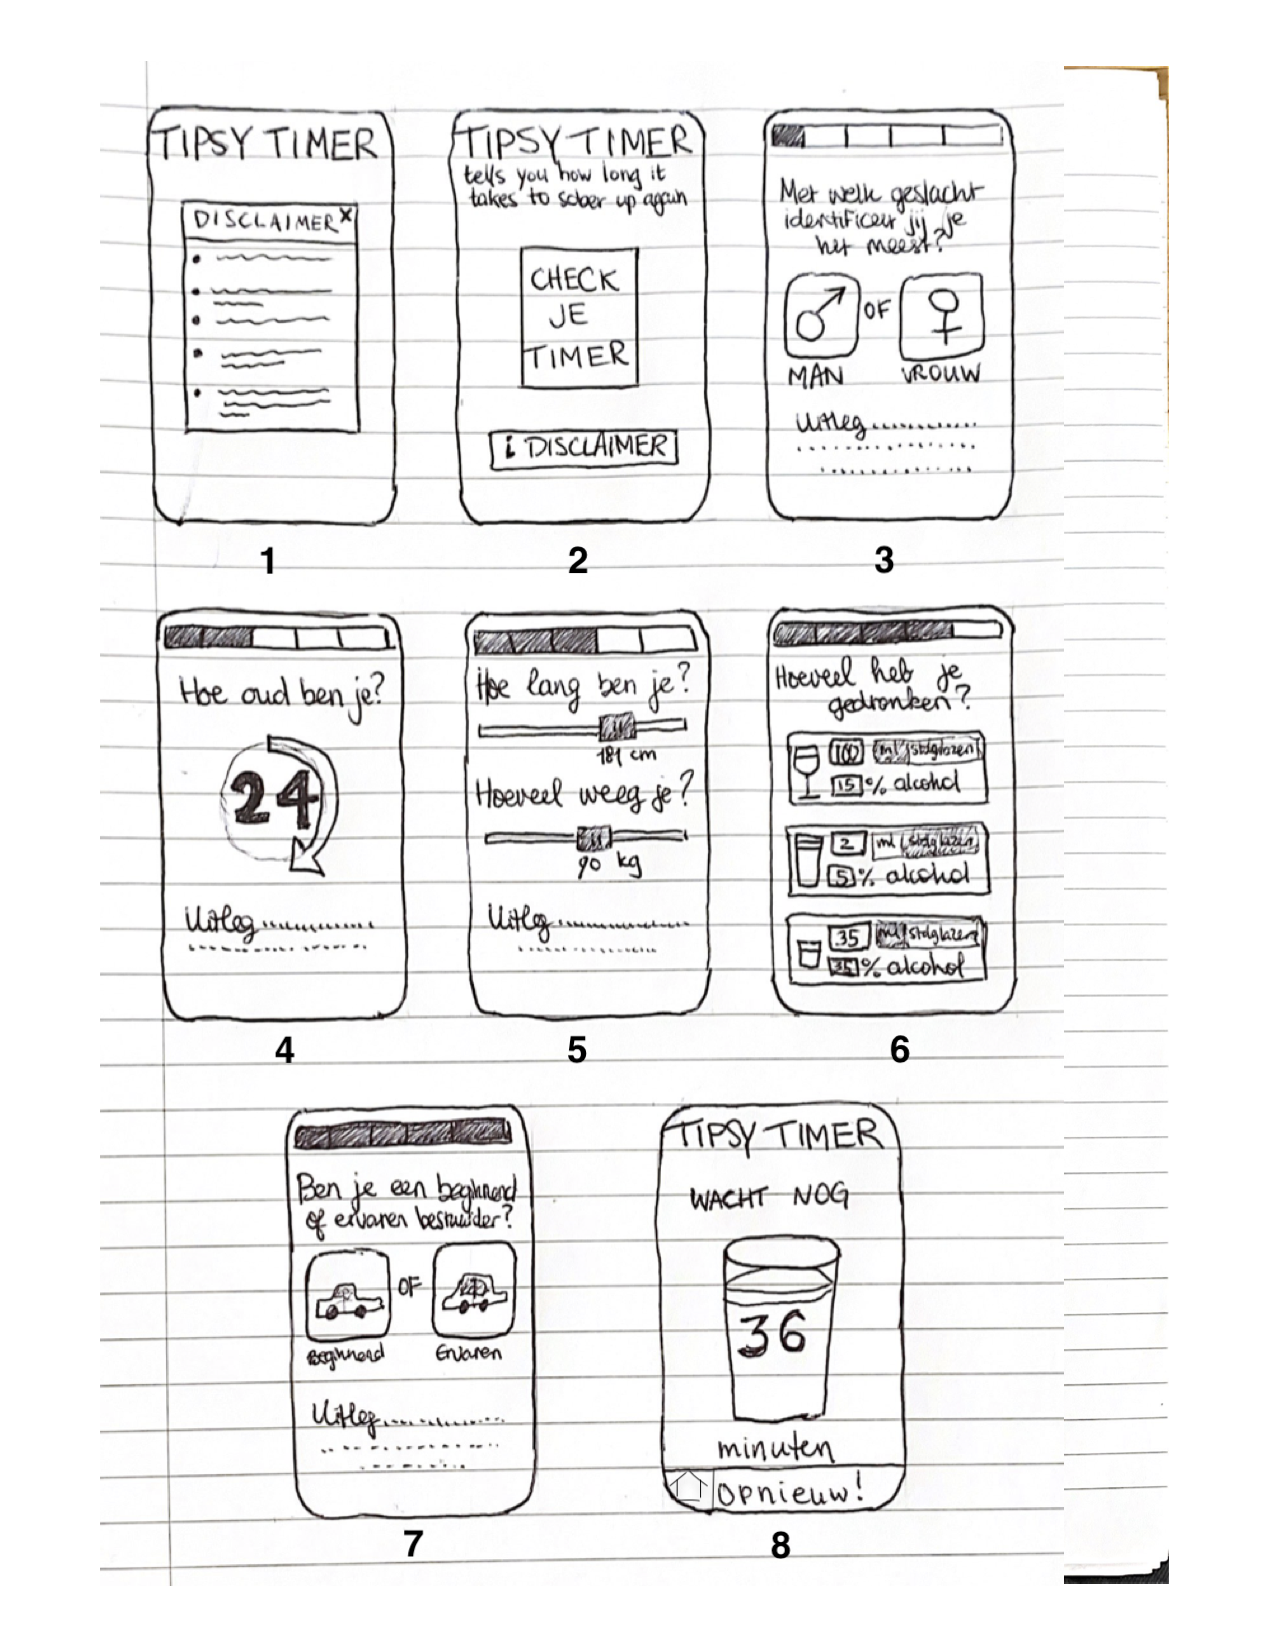 TIPSY TIMER
DISCLAIMER X
1
TIPSY TIMER
tells you how long it
takes to sober up again
CHECK
JE
TIMER
i DISCLAIMER
2
Met welk geslacht
identificeer jij je
het meest?
OF
MAN VROUW
Uitleg
3
Hoe oud ben je?
24
Uitleg
4
Hoe lang ben je?
181 cm
Hoeveel weeg je?
90 kg
Uitleg
5
Hoeveel heb je
gedronken?
100 ml stdglazen
15 % alcohol
2 ml stdglazen
5 % alcohol
35 ml stdglazen
35 % alcohol
6
Ben je een beginnend
of ervaren bestuurder?
OF
Beginnend Ervaren
Uitleg
7
TIPSY TIMER
WACHT NOG
36
minuten
opnieuw!
8